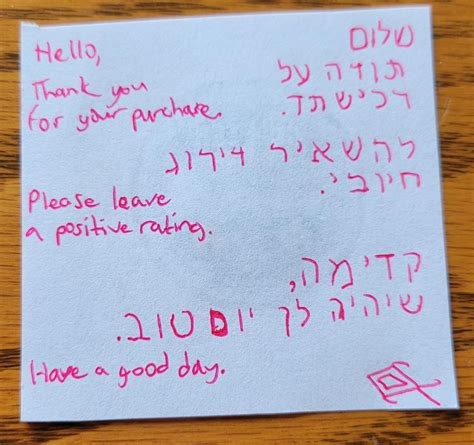 Hello,
Thank you
for your purchase.
שלום
תודה על
רכישתד.
להשאיר דירוג
חיובי.
Please leave
a positive rating.
קדימה,
שיהיה לך יום טוב.
Have a good day.